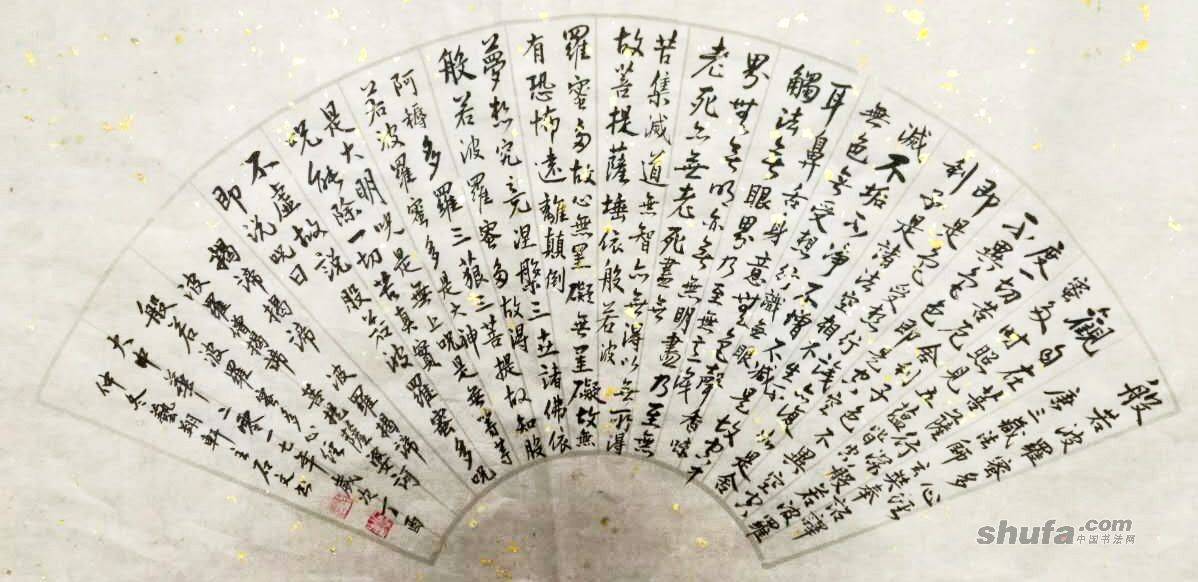 般若波羅蜜多心
唐三藏法師玄奘奉詔譯
觀自在菩薩行深般若波羅
蜜多時照見五蘊皆空
度一切苦厄舍利子色不異空空
不異色色即是空空
即是色受想行識亦復如是舍
利子是諸法空相不生不
滅不垢不淨不增不減是故空中
無色無受想行識無眼
耳鼻舌身意無色聲香味
觸法無眼界乃至無意識
界無無明亦無無明盡乃至無
老死亦無老死盡無
苦集滅道無智亦無得以無所得
故菩提薩埵依般若波
羅蜜多故心無罣礙無罣礙故無
有恐怖遠離顛倒
夢想究竟涅槃三世諸佛依
般若波羅蜜多故得
阿耨多羅三藐三菩提故知般
若波羅蜜多是大神呪
是大明呪是無上呪是無等等
呪能除一切苦真實
不虛故說般若波羅蜜多呪
即說呪曰
揭諦揭諦波羅揭諦
波羅僧揭諦菩提薩婆訶
般若波羅蜜多心經
二零一七年歲次丁酉
仲冬
shufa.com
中国书法网